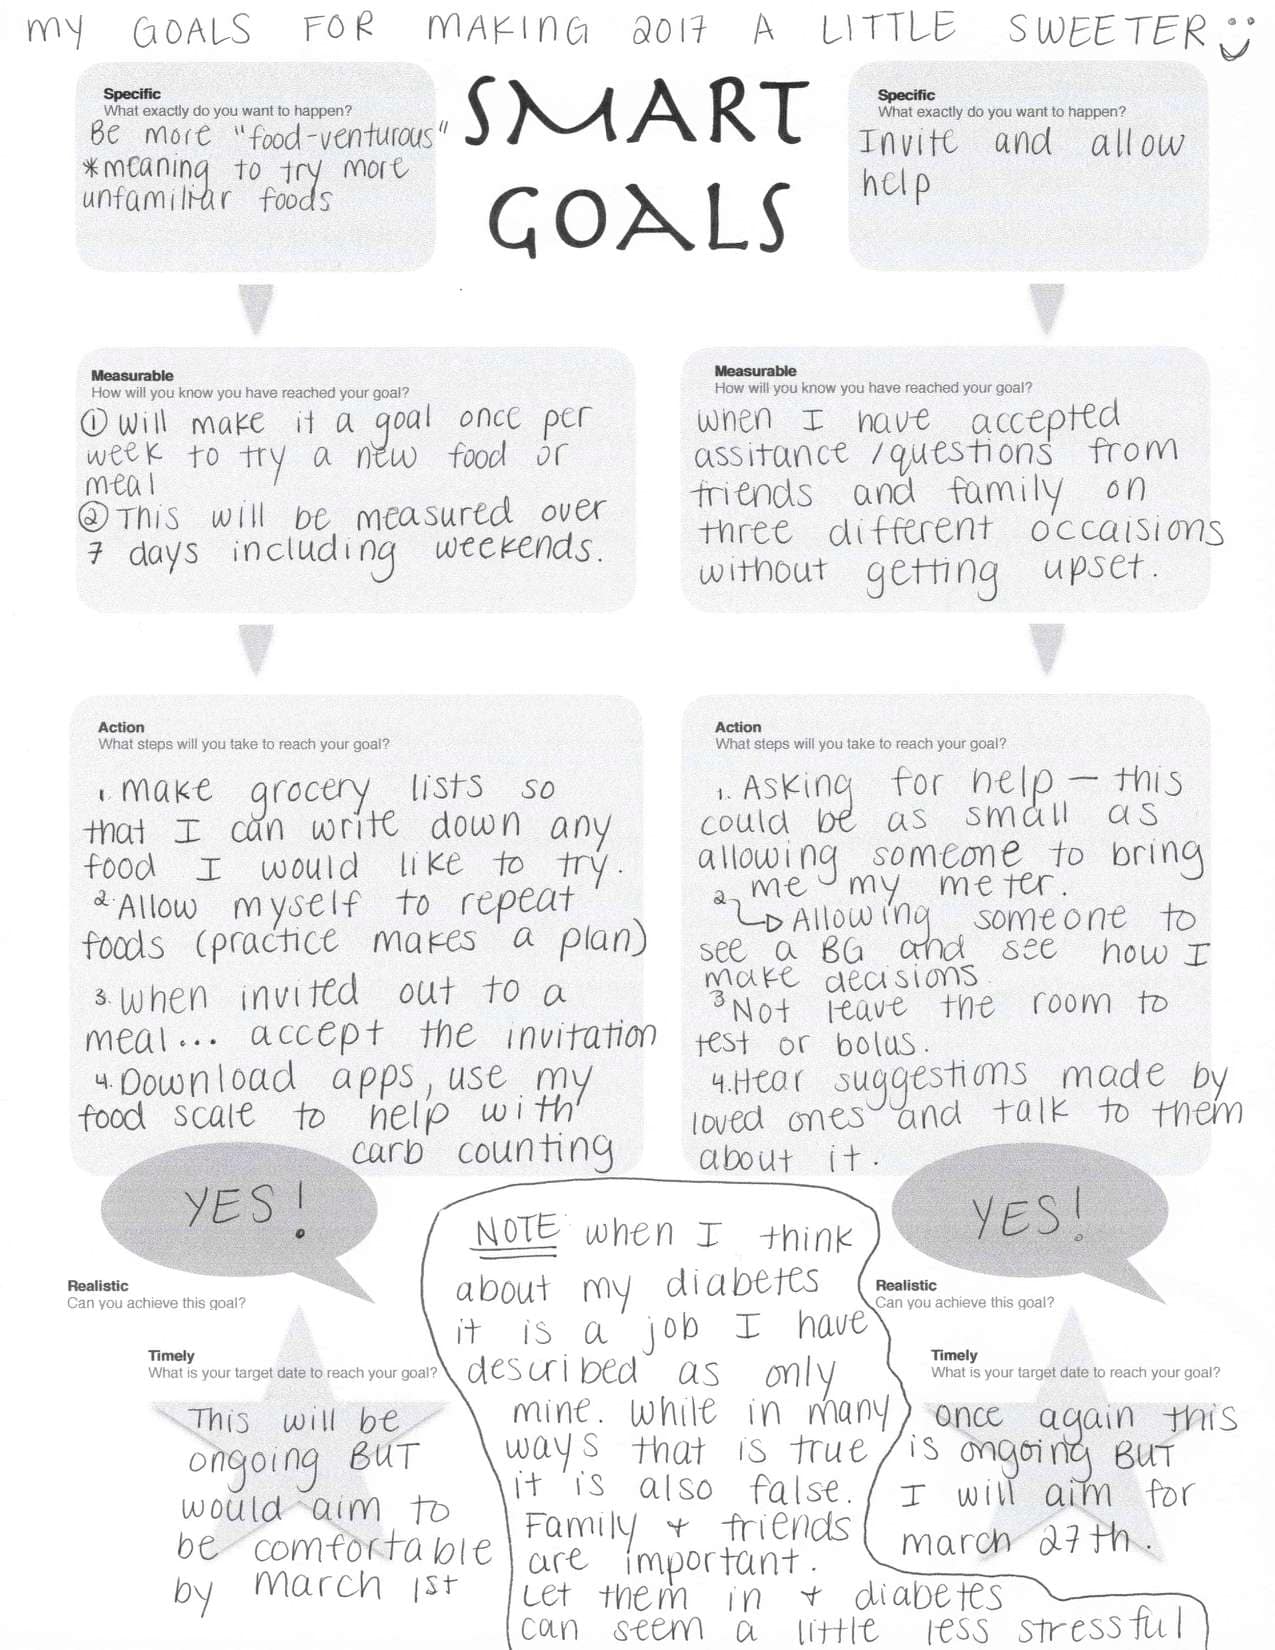 MY GOALS FOR MAKING 2017 A LITTLE SWEETER
SMART
GOALS
Specific
What exactly do you want to happen?
Be more "food-venturous"
*meaning to try more
unfamiliar foods
Measurable
How will you know you have reached your goal?
① Will make it a goal once per
week to try a new food or
meal
② This will be measured over
7 days including weekends.
Action
What steps will you take to reach your goal?
1. make grocery lists so
that I can write down any
food I would like to try.
2. Allow myself to repeat
foods (practice makes a plan)
3. when invited out to a
meal... accept the invitation
4. Download apps, use my
food scale to help with
carb counting
YES!
Realistic
Can you achieve this goal?
Timely
What is your target date to reach your goal?
This will be
ongoing BUT
would aim to
be comfortable
by march 1st
Specific
What exactly do you want to happen?
Invite and allow
help
Measurable
How will you know you have reached your goal?
when I have accepted
assitance /questions from
friends and family on
three different occaisions
without getting upset.
Action
What steps will you take to reach your goal?
1. Asking for help – this
could be as small as
allowing someone to bring
me my meter.
2. ↳ Allowing someone to
see a BG and see how I
make decisions
3 Not leave the room to
test or bolus.
4. Hear suggestions made by
loved ones and talk to them
about it.
YES!
Realistic
Can you achieve this goal?
Timely
What is your target date to reach your goal?
once again this
is ongoing BUT
I will aim for
march 27th.
NOTE when I think
about my diabetes
it is a job I have
described as only
mine. While in many
ways that is true
it is also false.
Family + friends
are important.
Let them in + diabetes
can seem a little less stressful